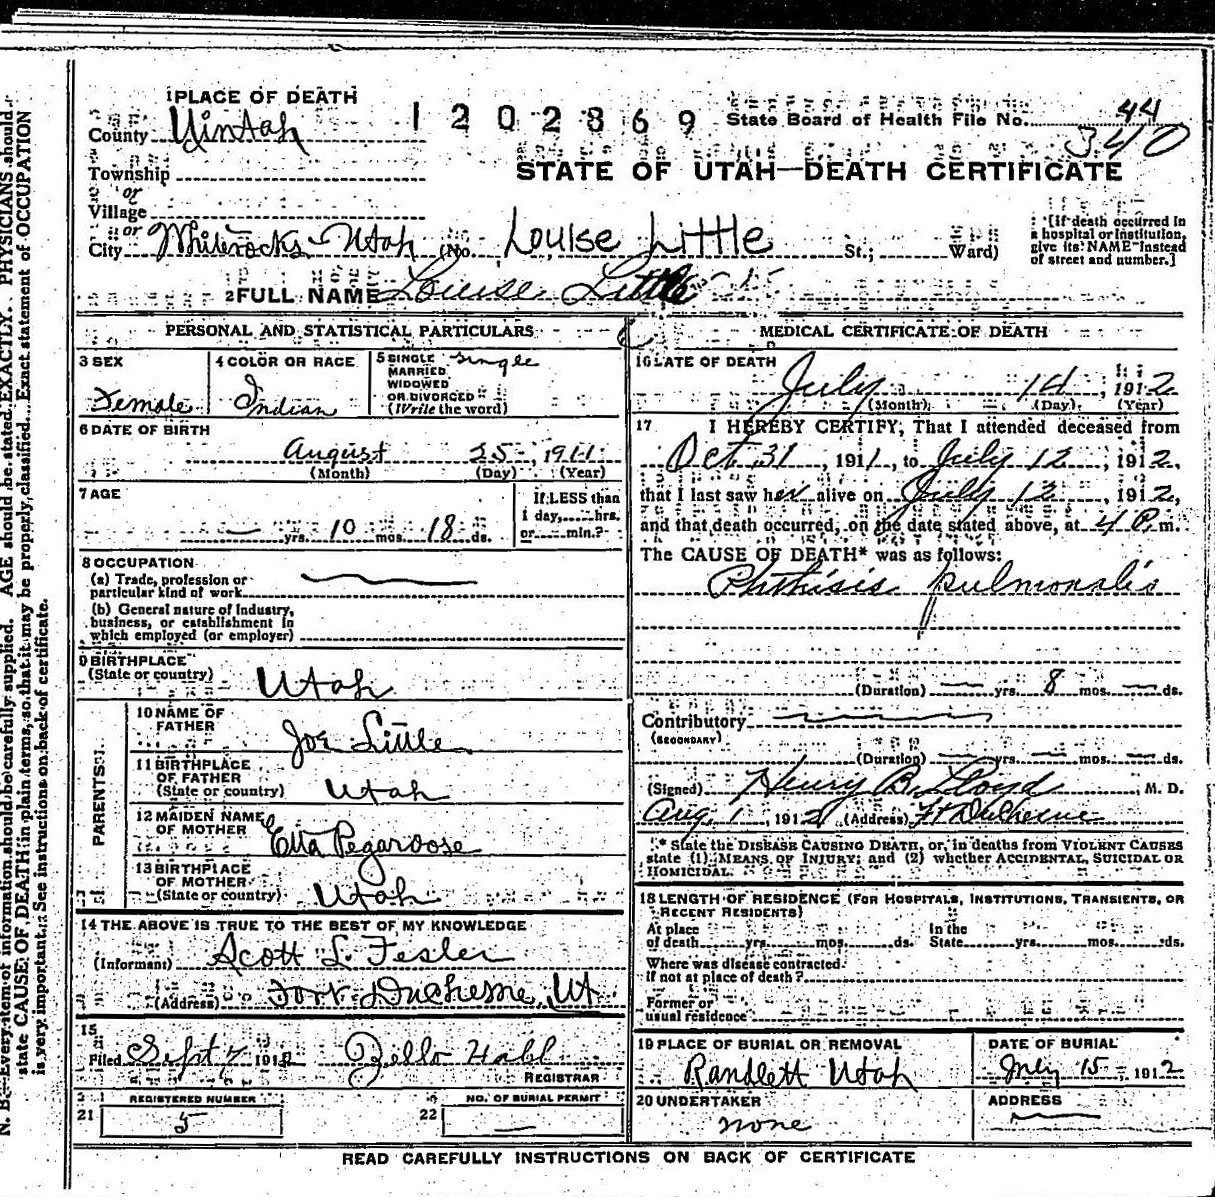 1 PLACE OF DEATH
County Uintah
1202869
State Board of Health File No. 44
340
Township
STATE OF UTAH—DEATH CERTIFICATE
or
Village
or
City Whiterocks Utah (No. Louise Little St.; Ward)
[If death occurred in
a hospital or institution,
give its NAME instead
of street and number.]
2 FULL NAME Louise Little
PERSONAL AND STATISTICAL PARTICULARS
3 SEX
Female
4 COLOR OR RACE
Indian
5 SINGLE single
MARRIED
WIDOWED
OR DIVORCED
(Write the word)
6 DATE OF BIRTH
August 25, 1911
(Month) (Day) (Year)
7 AGE
— yrs. 10 mos. 18 ds.
If LESS than
1 day, hrs.
or min.?
8 OCCUPATION
(a) Trade, profession or
particular kind of work
(b) General nature of industry,
business, or establishment in
which employed (or employer)
9 BIRTHPLACE
(State or country) Utah
PARENTS
10 NAME OF
FATHER Joe Little
11 BIRTHPLACE
OF FATHER
(State or country) Utah
12 MAIDEN NAME
OF MOTHER Etta Pegaroose
13 BIRTHPLACE
OF MOTHER
(State or country) Utah
14 THE ABOVE IS TRUE TO THE BEST OF MY KNOWLEDGE
(Informant) Scott L. Fesler
(Address) Fort Duchesne, Ut
15
Filed Sept 7 1912 Zello Hall
REGISTRAR
REGISTERED NUMBER
21 5
NO. OF BURIAL PERMIT
22 —
MEDICAL CERTIFICATE OF DEATH
16 DATE OF DEATH
July 14, 1912
(Month) (Day) (Year)
17 I HEREBY CERTIFY, That I attended deceased from
Oct 31, 1911, to July 12, 1912,
that I last saw her alive on July 12, 1912,
and that death occurred, on the date stated above, at 4 P. m.
The CAUSE OF DEATH* was as follows:
Phthisis pulmonalis
(Duration) — yrs. 8 mos. — ds.
Contributory
(SECONDARY)
(Duration) — yrs. — mos. — ds.
(Signed) Henry B. Lloyd, M. D.
Aug 1, 1912 (Address) Ft Duchesne
* State the DISEASE CAUSING DEATH, or, in deaths from VIOLENT CAUSES
state (1) MEANS OF INJURY; and (2) whether ACCIDENTAL, SUICIDAL OR
HOMICIDAL.
18 LENGTH OF RESIDENCE (FOR HOSPITALS, INSTITUTIONS, TRANSIENTS, OR
RECENT RESIDENTS)
At place
of death yrs. mos. ds.
In the
State yrs. mos. ds.
Where was disease contracted
if not at place of death?
Former or
usual residence
19 PLACE OF BURIAL OR REMOVAL
Randlett Utah
DATE OF BURIAL
July 15, 1912
20 UNDERTAKER
none
ADDRESS
READ CAREFULLY INSTRUCTIONS ON BACK OF CERTIFICATE
N. B.—Every item of information should be carefully supplied. AGE should be stated EXACTLY. PHYSICIANS should
state CAUSE OF DEATH in plain terms, so that it may be properly classified. Exact statement of OCCUPATION
is very important. See instructions on back of certificate.